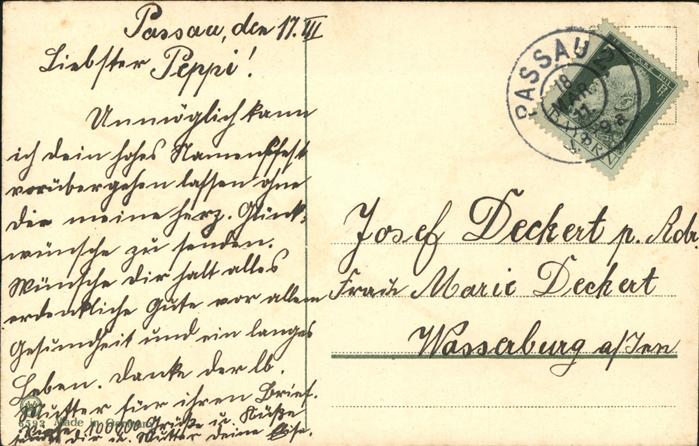 Passau, den 17. III
Liebster Peppi!
Unmöglich kann
ich dein hohes Namensfest
vorübergehen lassen ohne
dir meine herz. Glück-
wünsche zu senden.
Wünsche dir halt alles
erdenkliche Gute vor allem
Gesundheit und ein langes
Leben. Danke der lb.
Mutter für ihren Brief.
100000 Grüße u. Küße
dir u. Mutter deine
Made in Germany
PASSAU 2
18
MAR.
BAYERN
Josef Deckert p. Adr.
Frau Marie Deckert
Wasserburg a/Inn